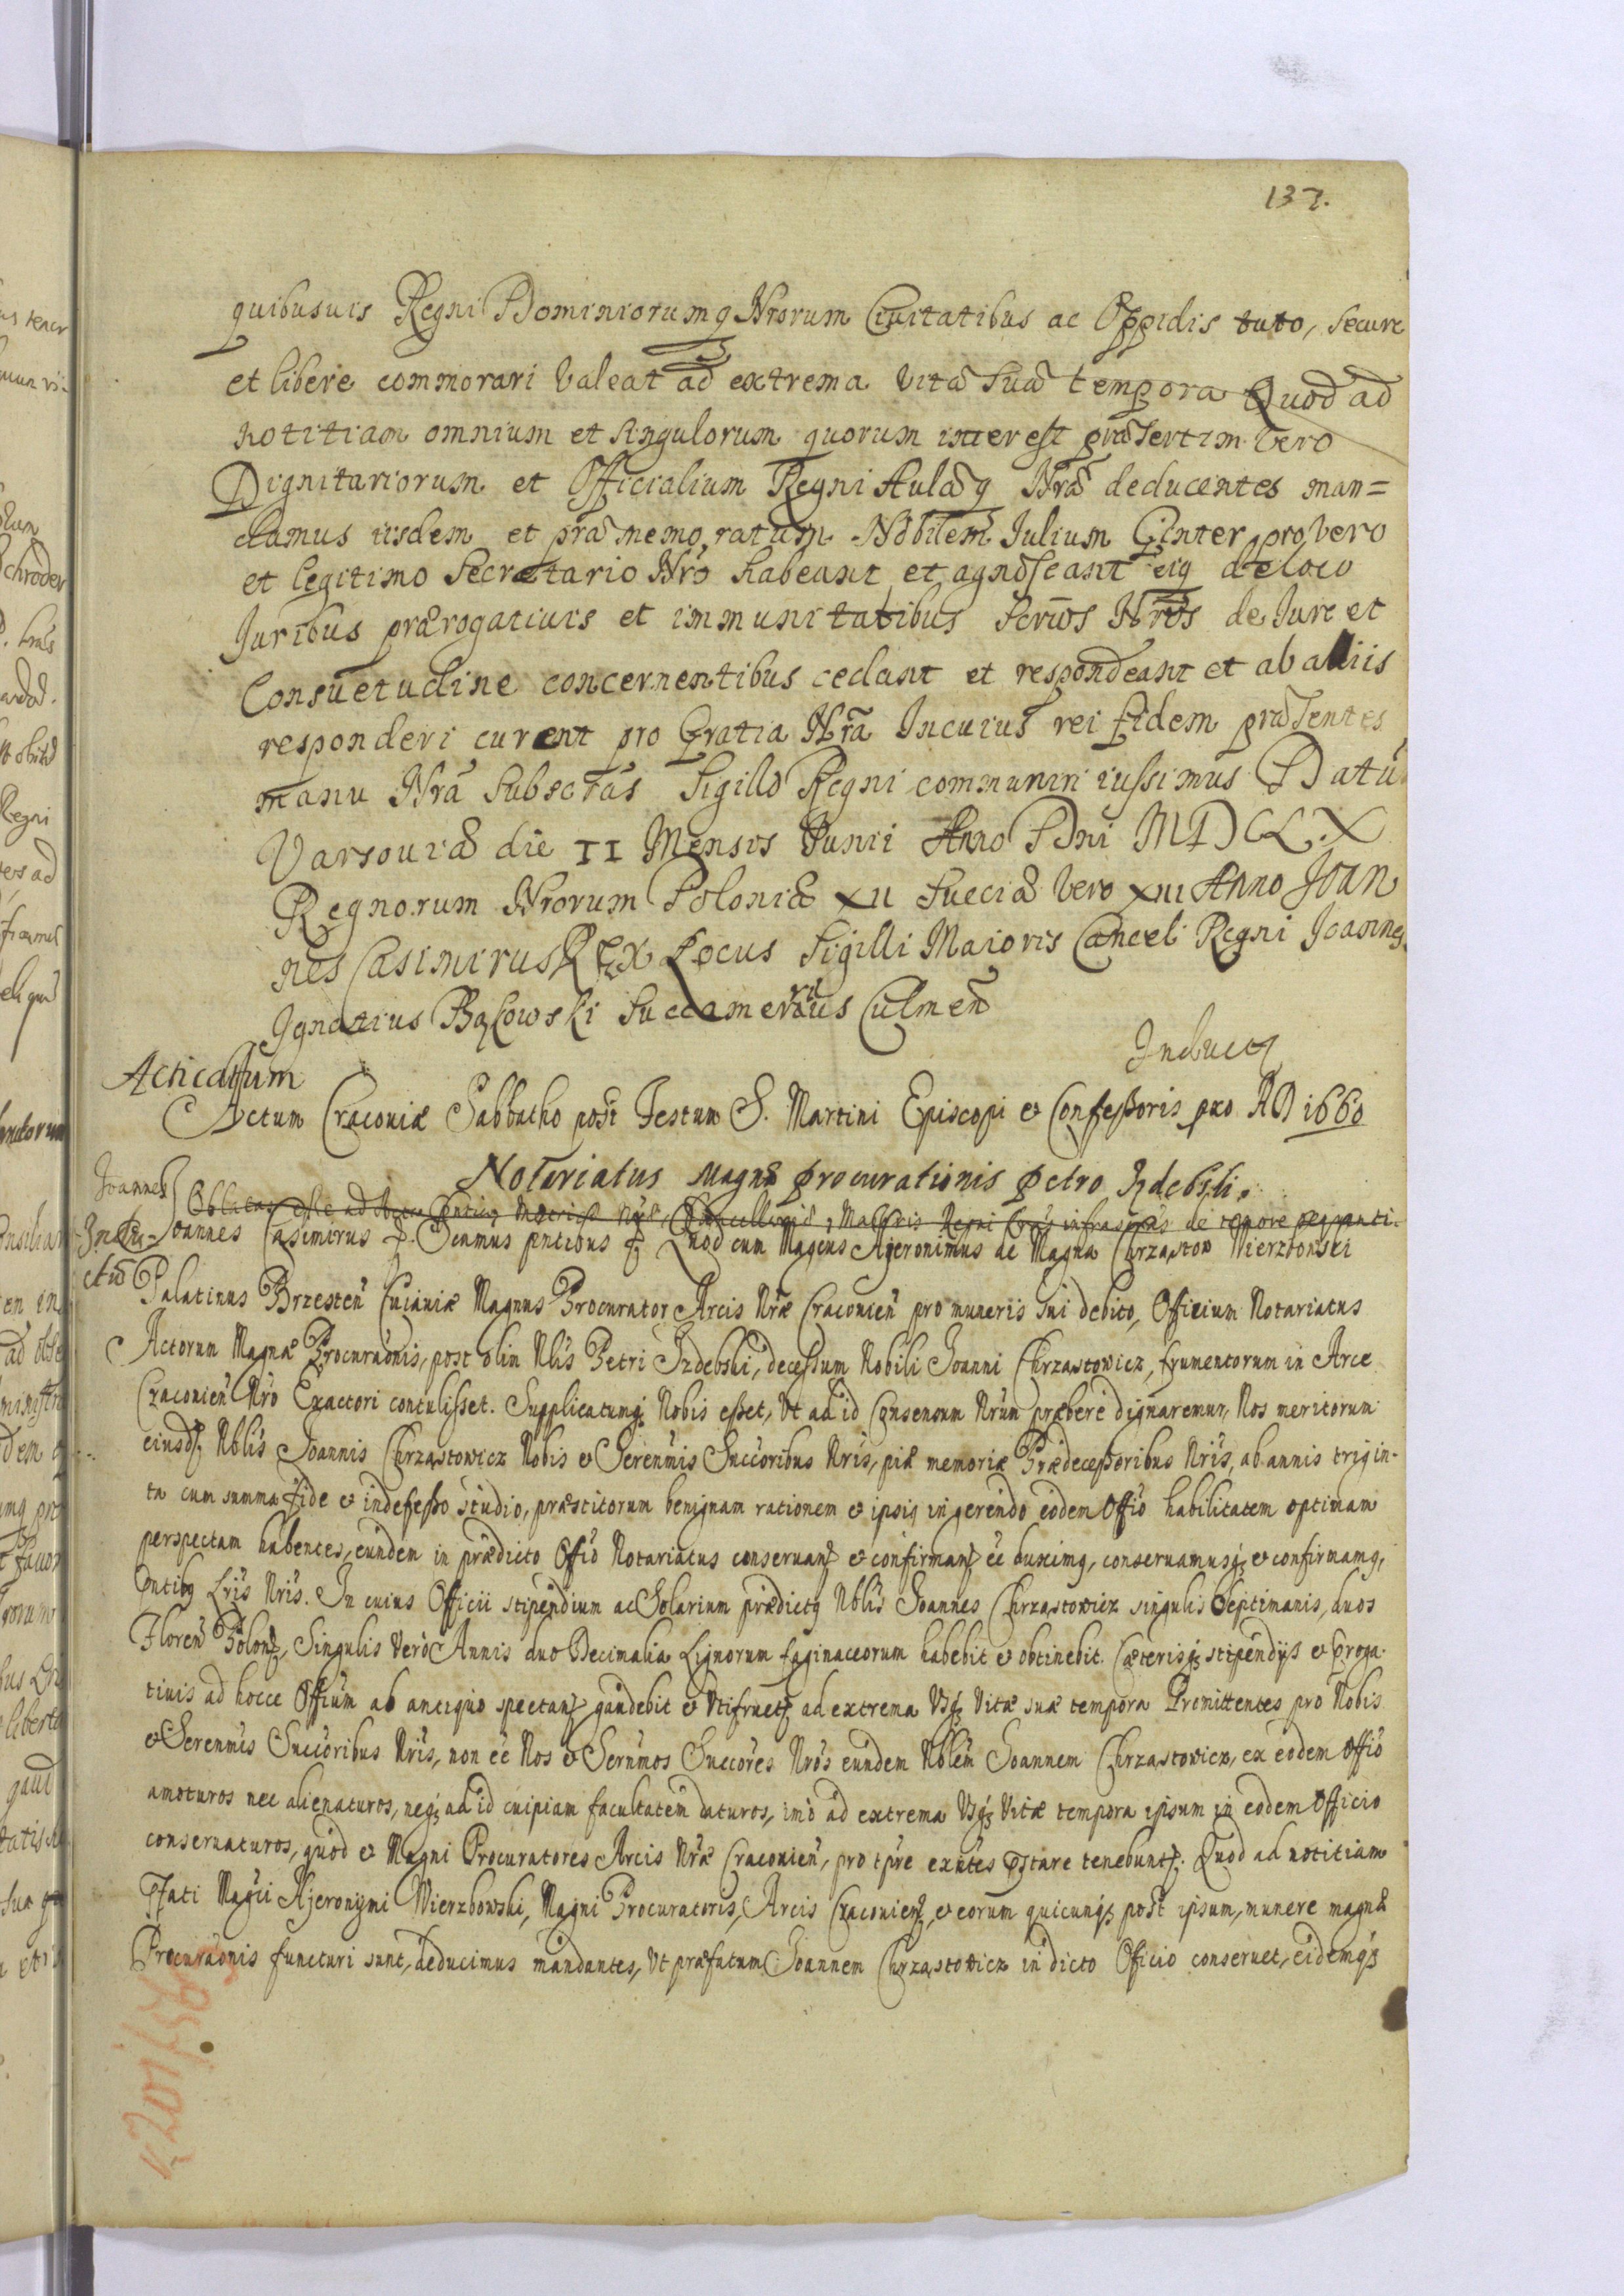 137.
quibusuis Regni Dominiorumq Nrorum Ciuitatibus ac Oppidis tuto, secure
et libere commorari valeat ad extrema vitæ suæ tempora Quod ad
notitiam omnium et singulorum quorum interest præsertim vero
Dignitariorum et Officialium Regni Aulæq Nræ deducentes man=
damus iisdem et præmemoratum Nobilem Iulium Ginter pro vero
et legitimo Secretario Nro habeant et agnoscant eiq de loco
Iuribus prærogatiuis et immunitatibus Seruos Nros de Iure et
Consuetudine concernentibus cedant et respondeant et ab aliis
responderi curent pro Gratia Nra In cuius rei fidem præsentes
manu Nra subsctas Sigillo Regni communiri iussimus Datū
Varsouiæ die 11 Mensis Iunii Anno Dni MDCLX
Regnorum Nrorum Poloniæ XII Sueciæ vero XIII Anno Joan
nes Casimirus REX Locus Sigilli Maioris Cancel: Regni Joannes
Ignatius Bąkowski Succamerarius Culmen
Inducta
Acticatum
Actum Cracouiæ Sabbatho post Festum S. Martini Episcopi et Confessoris pro AD 1660
Notariatus Magnæ procurationis petro Izdebski.
Joannes
Oblatas esse ad Acta infrascptas de tenore sequenti.
Indu- Joannes Casimirus &. Scimus pntibus &. Quod cum Magcus Hjeronimus de Magna Chrząstow Wierzbowski
ctio Palatinus Brzesten Cuiauiæ Magnus Procurator Arcis Nræ Cracouien pro muneris sui debito, Officium Notariatus
Actorum Magnæ Procuraōnis, post olim Nblis Petri Izdebski, decessum Nobili Joanni Chrząstowicz, frumentorum in Arce
Cracouien Nro Exactori contulisset. Supplicatumq Nobis esset, Vt ad id Consensum Nrum præbere dignaremur, Nos meritorum
eiusdē Nblis Joannis Chrząstowicz Nobis et Serenmis Succoribus Nris, piæ memoriæ Prædecessoribus Nris, ab annis trigin-
ta cum summa fide et indefesso studio, præstitorum benignam rationem et ipsiq in gerendo eodem Offio habilitatem optimam
perspectam habentes, eundem in prædicto Offio Notariatus conseruanđ et confirmanđ eē duximq, conseruamusq et confirmamq,
pntibq Lris Nris. In cuius Officii stipendium ac Solarium prædictq Nblis Joannes Chrząstowicz singulis Septimanis, duos
Floren Polon, Singulis verò Annis duo Decimalia Lignorum faginaceorum habebit et obtinebit. Cæterisq stipendijs et proga-
tiuis ad hocce Offium ab antiquo spectan gaudebit et Vtifruetr ad extrema Vsq Vitæ suæ tempora Promittentes pro Nobis
et Serenmis Succoribus Nris, non eē Nos et Sernmos Succores Nros eundem Nblem Joannem Chrząstowicz, ex eodem Offio
amoturos nec alienaturos, neq ad id cuipiam facultatem daturos, imò ad extrema Vsq Vitæ tempora ipsum in eodem Officio
conseruaturos, quod et Magni Procuratores Arcis Nræ Cracouien, pro tpre exntes pstare tenebuntr. Quod ad notitiam
Pfati Magci Hjeronymi Wierzbowski, Magni Procuratoris, Arcis Cracouien, et eorum quicunq post ipsum, munere magnæ
Procuraōnis functuri sunt, deducimus mandantes, Vt præfatum Joannem Chrząstowicz in dicto Officio conseruet, eidemq